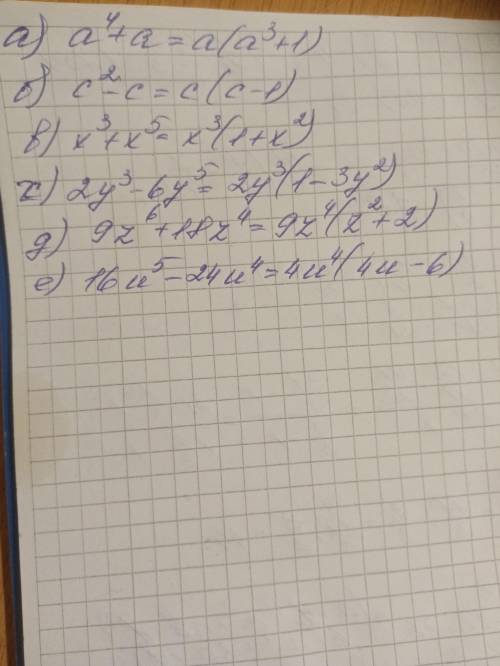 а) a⁴+a = a(a³+1)
б) c²-c = c(c-1)
в) x³+x⁵= x³(1+x²)
г) 2y³-6y⁵= 2y³(1-3y²)
д) 9z⁶+18z⁴= 9z⁴(z²+2)
е) 16u⁵-24u⁴=4u⁴(4u-6)